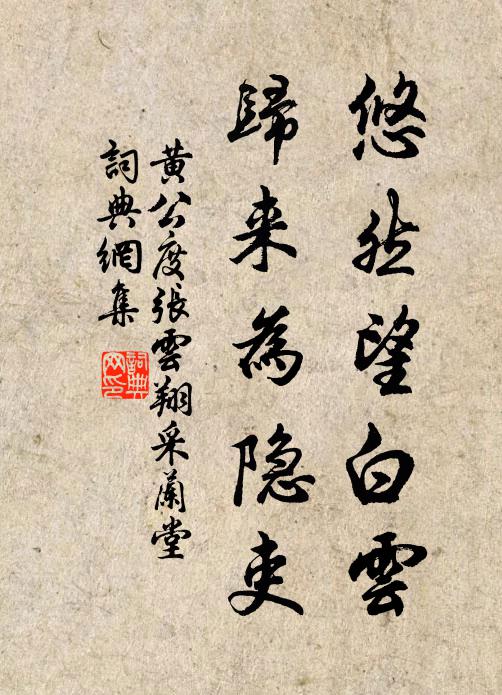 悠然望白雲
歸来為隐吏
黄公度張雲翔采蘭堂
詞典網集
詞典網印